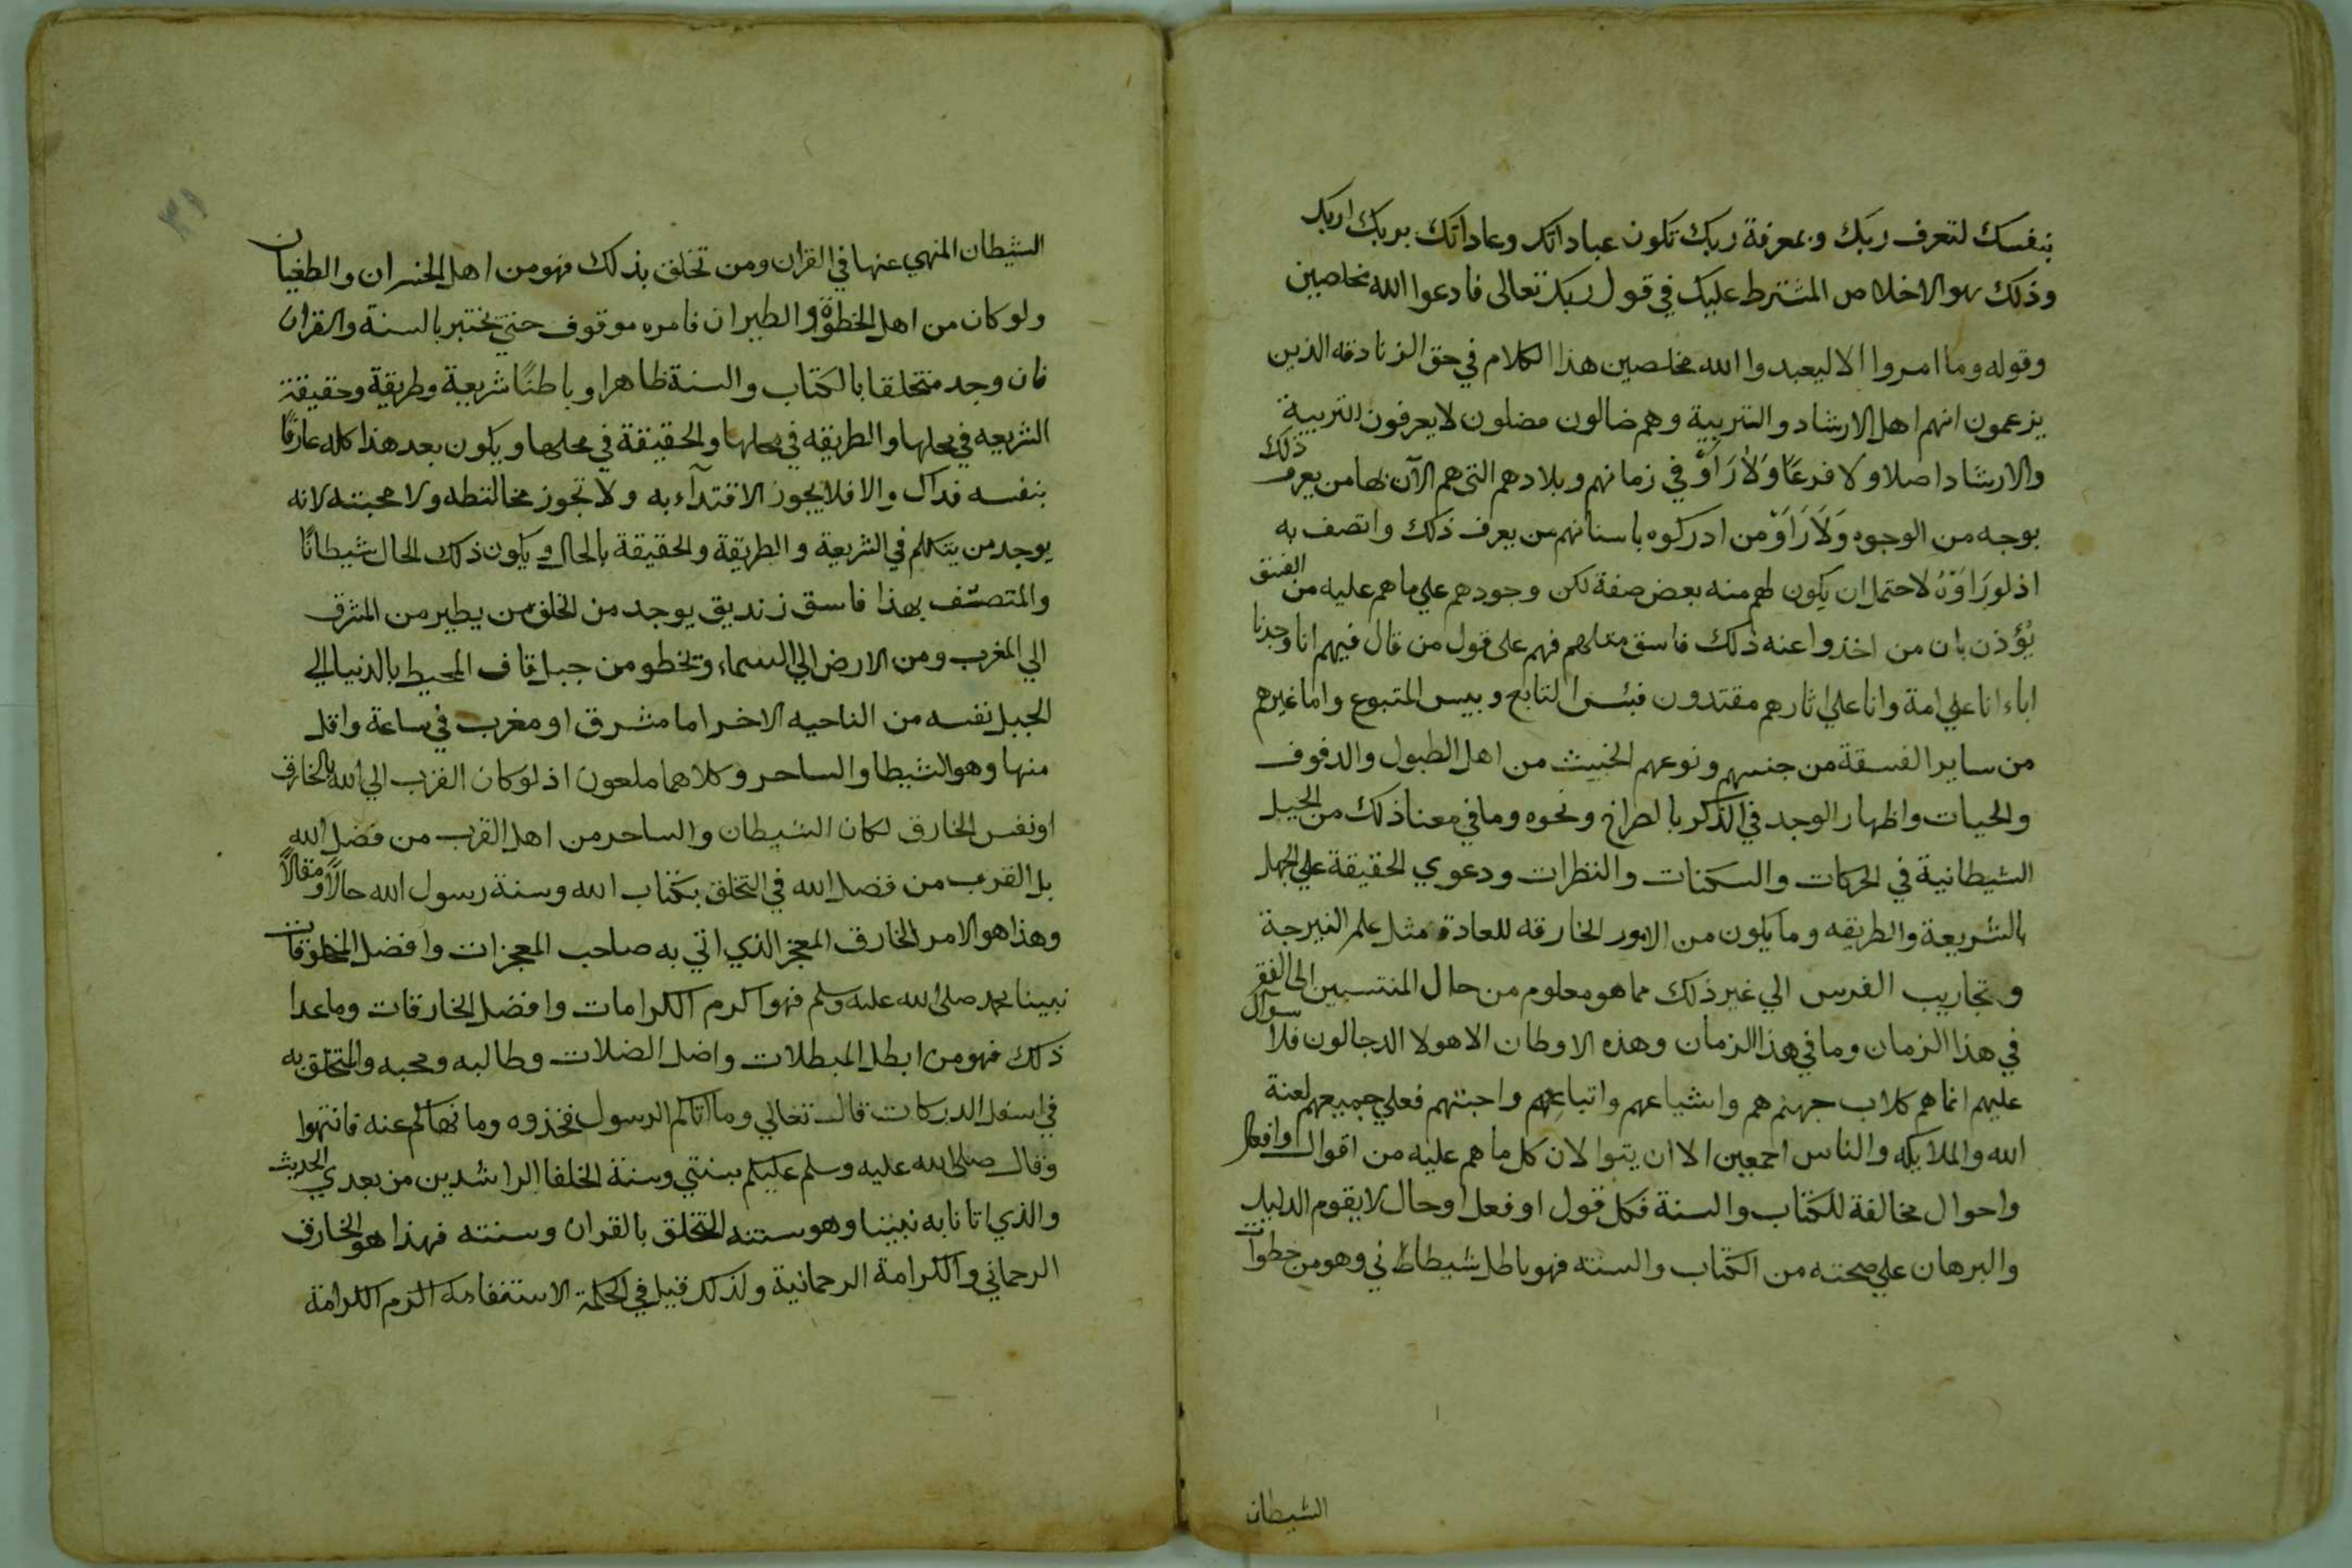 بنفسك لتعرف ربك وبمعرفة ربك تكون عباداتك وعاداتك بربك لربك
وذلك هو الاخلاص المشترط عليك في قول ربك تعالى فادعوا الله مخلصين
وقوله وما امروا الا ليعبدوا الله مخلصين هذا الكلام في حق الزنادقه الذين
يزعمون انهم اهل الارشاد والتربية وهم ضالون مضلون لا يعرفون التربية
والارشاد اصلا ولا فرعًا وَلَا رَاَوْ في زمانهم وبلادهم التي هم الآن بها من يعرف ذلك
بوجه من الوجوه وَلَا رَاَوْ من ادركوه باسنانهم من يعرف ذلك واتصف به
اذ لو رَاَوْهُ لاحتمل ان يكون لهم منه بعض صفة لكن وجودهم علي ما هم عليه من الفسق
يُؤذن بان من اخذوا عنه ذلك فاسق مثلهم فهم على قول من قال فيهم انا وجدنا
اباءنا على امة وانا علي اثارهم مقتدون فبئس التابع وبيس المتبوع واما غيرهم
من ساير الفسقة من جنسهم ونوعهم الخبيث من اهل الطبول والدفوف
والحيات واظهار الوجد في الذكر بالصراخ ونحوه وما في معنا ذلك من الحيل
الشيطانية في الحركات والسكنات والنظرات ودعوي الحقيقة علي الجهل
بالشريعة والطريقه وما يكون من الامور الخارقه للعادة مثل علم النيرجة
وتجاريب الفرس الي غير ذلك مما هو معلوم من حال المنتسبين الى الفقر
في هذا الزمان وما في هذا الزمان وهذه الاوطان الا هولا الدجالون فلا سوال
عليهم انما هم كلاب جهنم هم واشياعهم واتباعهم واحبتهم فعلي جميعهم لعنة
الله والملايكه والناس اجمعين الا ان يتوا لان كل ما هم عليه من اقوال وافعال
واحوال مخالفة للكتاب والسنة فكل قول او فعل او حال لا يقوم الدليل
والبرهان علي صحته من الكتاب والسنته فهو باطل شيطاطاني وهو من خطوات
الشيطان
٣١
الشيطان المنهي عنها في القران ومن تخلق بذلك فهو من اهل الخسران والطغيان
ولو كان من اهل الخطوة والطيران فامره موقوف حتي يختبر بالسنة والقران
فان وجد متخلقا بالكتاب والسنة ظاهرا وباطنًا شريعة وطريقة وحقيقة
الشريعه في محلها والطريقه في محلها والحقيقة في محلها ويكون بعد هذا كله عارفًا
بنفسه فذاك والا فلا يجوز الاقتدآء به ولا تجوز مخالتطه ولا محبته لانه
يوجد من يتكلم في الشريعة والطريقة والحقيقة بالحال ويكون ذلك الحال شيطانًا
والمتصف بهذا فاسق زنديق يوجد من الخلق من يطير من المشرق
الي المغرب ومن الارض الي السماء ويخطو من جبل قاف المحيط بالدنيا الي
الجبل نفسه من الناحيه الاخر اما مشرق او مغرب في ساعة واقل
منها وهو الشيطا والساحر وكلاهما ملعون اذ لو كان القرب الي الله بالخارق
او نفس الخارق لكان الشيطان والساحر من اهل القرب من فضل الله
بل القرب من فضل الله في التخلق بكتاب الله وسنة رسول الله حالًا ومقالًا
وهذا هو الامر الخارق المعجز الذي اتي به صاحب المعجزات وافضل المخلوقات
نبينا محمد صلى الله عليه وسلم فهو اكرم الكرامات وافضل الخارقات وما عدا
ذلك فهو من ابطل المبطلات واضل الضلات وطالبه ومحبه والمتخلق به
في اسفل الدركات قال تعالي وما اتاكم الرسول فخذوه وما نهاكم عنه فانتهوا
وقال صلى الله عليه وسلم عليكم بسنتي وسنة الخلفا الراشدين من بعدي الحديث
والذي اتانا به نبينا وهو سنته التخلق بالقران وسنته فهذا هو الخارق
الرحماني والكرامة الرحمانية ولذلك قيل في الحكمة الاستقامة الزم الكرامة